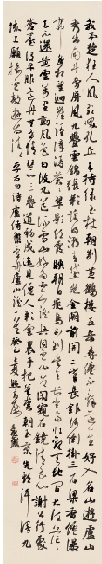 我本楚狂人鳳歌笑孔丘手持綠玉杖朝別黃鶴樓五岳尋仙不辭遠一生好入名山遊廬山
秀出南斗傍屏風九疊雲錦張影落明湖青黛光金闕前開二峰長銀河倒掛三石梁香爐瀑
布遙相望迴崖沓嶂凌蒼蒼翠影紅霞映朝日鳥飛不到吳天長登高壯觀天地間大江茫茫
去不還黃雲萬里動風色白波九道流雪山好為廬山謠興因廬山發閒窺石鏡清我心謝公行處
蒼苔沒早服還丹無世情琴心三疊道初成遙見仙人彩雲裏手把芙蓉朝玉京先期汗漫九
垓上願接盧敖遊太清